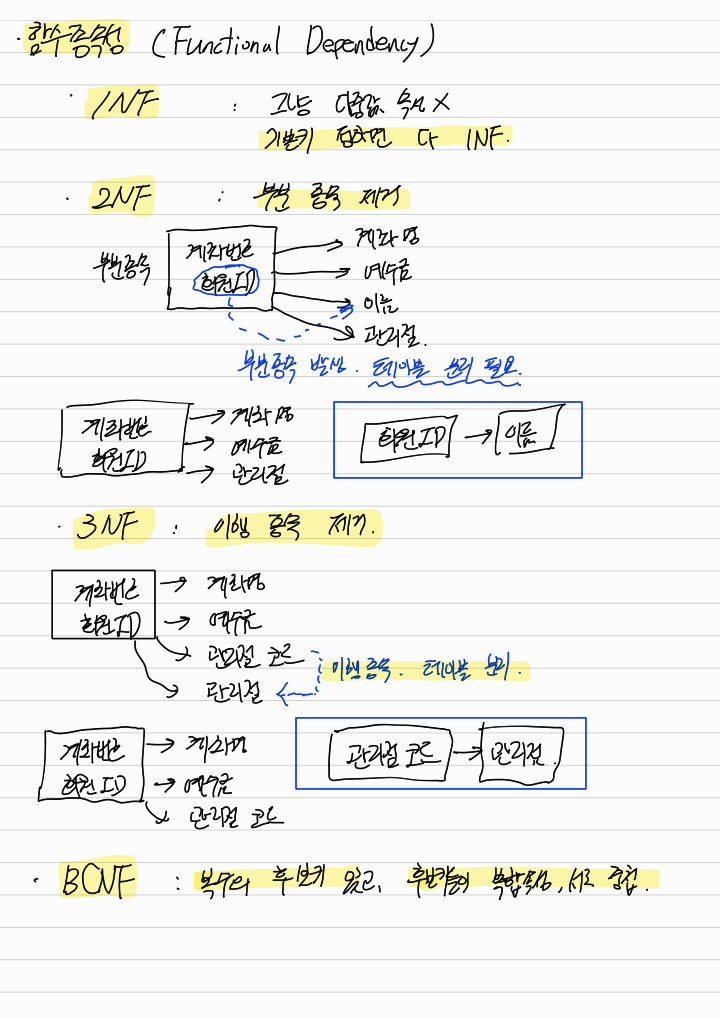 · 함수종속성 (Functional Dependency)
· 1NF : 그냥 다중값 속성 X
기본키 잡히면 다 1NF.
· 2NF : 부분 종속 제거
부분종속
계좌번호
회원ID
계좌명
예수금
이름
관리점.
부분종속 발생. 테이블 분리 필요.
계좌번호
회원ID
계좌명
예수금
관리점
회원ID → 이름
· 3NF : 이행 종속 제거.
계좌번호
회원ID
계좌명
예수금
관리점 코드
관리점
이행종속. 테이블 분리.
계좌번호
회원ID
계좌명
예수금
관리점 코드
관리점 코드 → 관리점.
· BCNF : 복수의 후보키 있고, 후보키들이 복합속성, 서로 중첩.